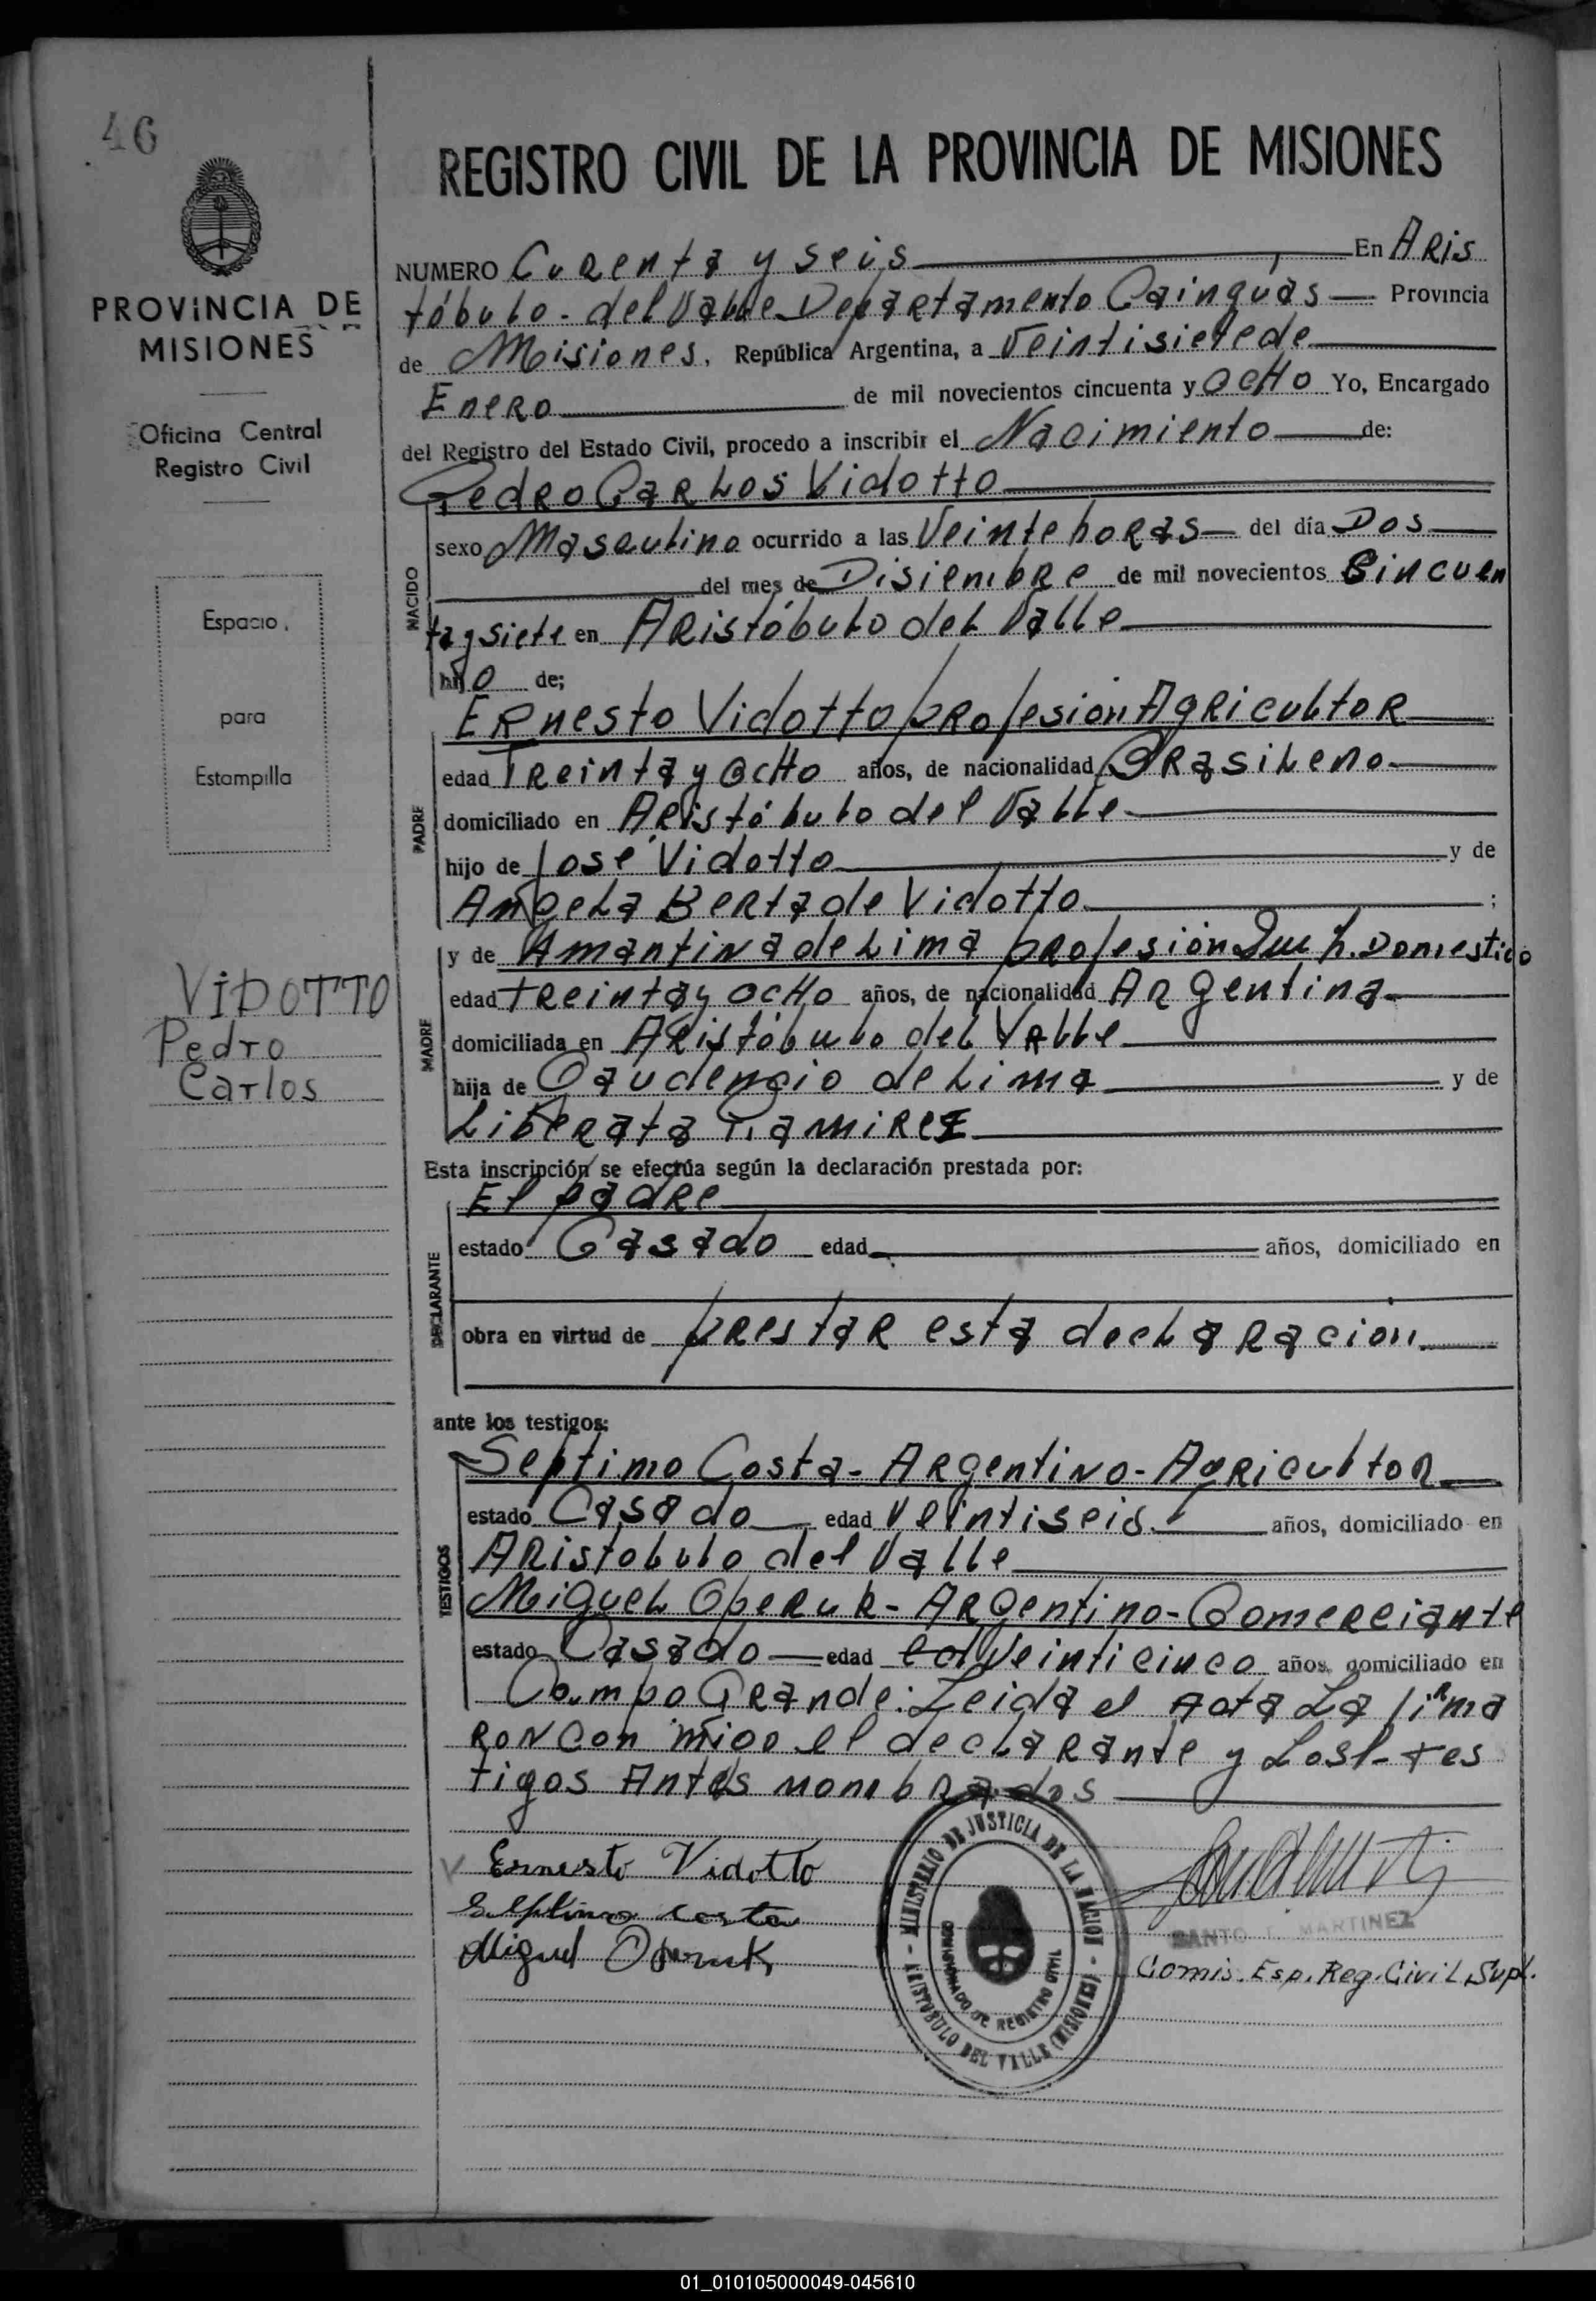 46
REGISTRO CIVIL DE LA PROVINCIA DE MISIONES
PROVINCIA DE
MISIONES
Oficina Central
Registro Civil
Espacio
para
Estampilla
VIDOTTO
Pedro
Carlos
NUMERO Curenta y seis En Aris
tóbulo - del Valle Departamento Cainguás Provincia
de Misiones, República Argentina, a Veintisiete de
Enero de mil novecientos cincuenta y Ocho Yo, Encargado
del Registro del Estado Civil, procedo a inscribir el Nacimiento de:
Pedro Carlos Vidotto
NACIDO
sexo Masculino ocurrido a las Veinte horas del día Dos
del mes de Disiembre de mil novecientos Cincuen
ta y siete en Aristóbulo del Valle
hijo de;
Ernesto Vidotto profesión Agricultor
PADRE
edad Treinta y Ocho años, de nacionalidad Brasileno
domiciliado en Aristóbulo del Valle
hijo de José Vidotto y de
Angela Berta de Vidotto ;
y de Amantina de Lima profesión Domestico
MADRE
edad treinta y ocho años, de nacionalidad Argentina
domiciliada en Aristóbulo del Valle
hija de Gaudencio de Lima y de
Liberata Ramirez
Esta inscripción se efectúa según la declaración prestada por:
El padre
DECLARANTE
estado Casado edad años, domiciliado en
obra en virtud de prestar esta declaracion
ante los testigos:
Septimo Costa - Argentino - Agricultor
TESTIGOS
estado Casado edad Veintiseis años, domiciliado en
Aristobulo del Valle
Miguel Operuk - Argentino - Comerciante
estado Casado edad Veinticinco años, domiciliado en
Campo Grande: Leida el Acta La firma
ron con migo el declarante y Los tes
tigos Antes nombrados
Ernesto Vidotto
Septimo Costa
Miguel Operuk
MINISTERIO DE JUSTICIA DE LA NACION - ARISTOBULO DEL VALLE (MISIONES) -
REGISTRO CIVIL
SANTO MARTINEZ
Comis. Esp. Reg. Civil Supl.
01_010105000049-045610